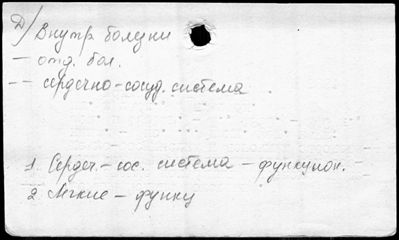 D/ Внутр болезни
— отд. бол.
— — сердечно-сосуд. система
1 Сердеч.-сос. система — функцион.
2 Легкие — функц